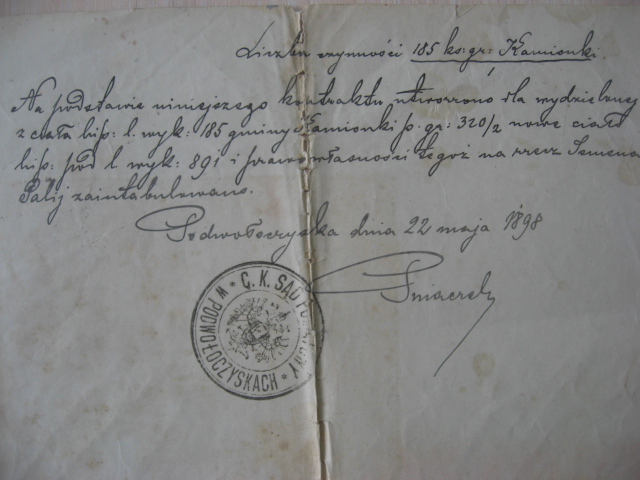 Liczba czynności 185 ks: gr: Kamionki.
Na podstawie niniejszego kontraktu utworzono dla wydzielonej
z ciała hip: l. wyk: 185 gminy Kamionki p. gr: 320/2 nowe ciało
hip: pod l. wyk: 891 i prawo własności tegoż na rzecz Semena
Palij zaintabulowano.
Podwołoczyska dnia 22 maja 1898
C. K. SĄD POWIATOWY * W PODWOŁOCZYSKACH *